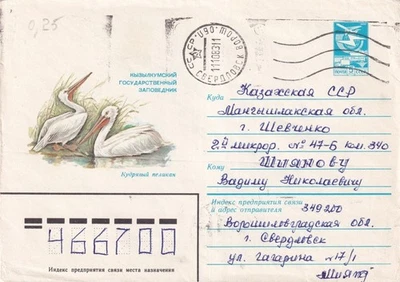 0,25
КЫЗЫЛКУМСКИЙ
ГОСУДАРСТВЕННЫЙ
ЗАПОВЕДНИК
Кудрявый пеликан
СВЕРДЛОВСК
Куда Казахская ССР
Мангышлакская обл.
г. Шевченко
2й микрор. №47-6 ком. 340
Кому Шиянову
Вадиму Николаевичу
Индекс предприятия связи
и адрес отправителя 349200
Ворошиловградская обл.
г. Свердловск
ул. Гагарина 17/1
466700
Индекс предприятия связи места назначения